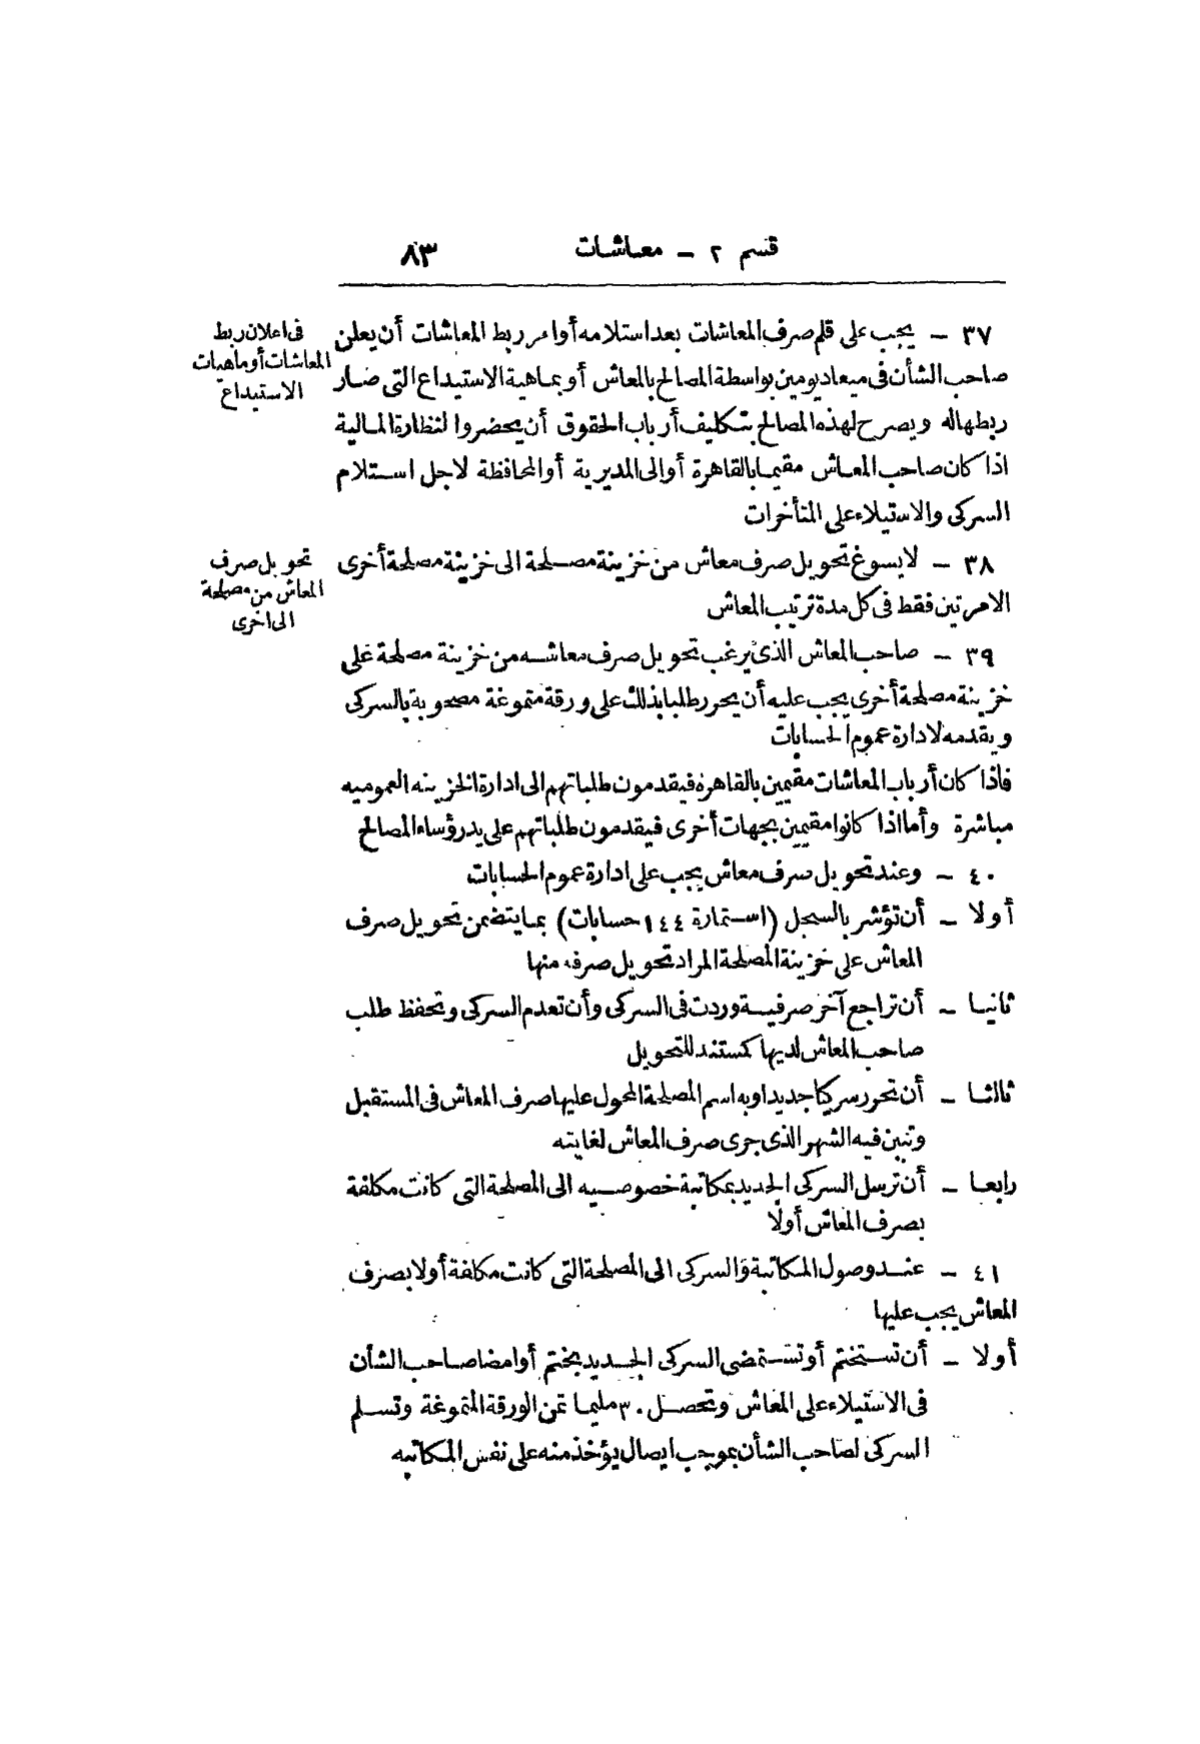 قسم ٢ – معاشات ٨٣
٣٧ – يجب على قلم صرف المعاشات بعد استلامه أوامر ربط المعاشات أن يعلن
صاحب الشأن فى ميعاد يومين بواسطة المصالح بالمعاش أو بماهية الاستيداع التى صار
ربطها له ويصرح لهذه المصالح بتكليف أرباب الحقوق أن يحضروا لنظارة المالية
اذا كان صاحب المعاش مقيما بالقاهرة أو الى المديرية أو المحافظة لاجل استلام
السركى والاستيلاء على المتأخرات
فى اعلان ربط
المعاشات أو ماهيات
الاستيداع
٣٨ – لا يسوغ تحويل صرف معاش من خزينة مصلحة الى خزينة مصلحة أخرى
الا مرتين فقط فى كل مدة ترتيب المعاش
تحويل صرف
المعاش من مصلحة
الى اخرى
٣٩ – صاحب المعاش الذى يرغب تحويل صرف معاشه من خزينة مصلحة على
خزينة مصلحة أخرى يجب عليه أن يحرر طلبا بذلك على ورقة متموغة مصحوبة بالسركى
ويقدمه لادارة عموم الحسابات
فاذا كان أرباب المعاشات مقيمين بالقاهرة فيقدمون طلباتهم الى ادارة الخزينه العموميه
مباشرة وأما اذا كانوا مقيمين بجهات أخرى فيقدمون طلباتهم على يد رؤساء المصالح
٤٠ – وعند تحويل صرف معاش يجب على ادارة عموم الحسابات
أولا – أن تؤشر بالسجل (استمارة ١٤٤ حسابات) بما يتضمن تحويل صرف
المعاش على خزينة المصلحة المراد تحويل صرفه منها
ثانيا – أن تراجع آخر صرفية وردت فى السركى وأن تعدم السركى وتحفظ طلب
صاحب المعاش لديها كمستند للتحويل
ثالثا – أن تحرر سركيا جديدا وبه اسم المصلحة المحول عليها صرف المعاش فى المستقبل
وتبين فيه الشهر الذى جرى صرف المعاش لغايته
رابعا – أن ترسل السركى الجديد بمكاتبة خصوصيه الى المصلحة التى كانت مكلفة
بصرف المعاش أولا
٤١ – عند وصول المكاتبة والسركى الى المصلحة التى كانت مكلفة أولا بصرف
المعاش يجب عليها
أولا – أن تستختم أو تستمضى السركى الجديد بختم أو امضا صاحب الشأن
فى الاستيلاء على المعاش وتحصل ٣٠ مليما ثمن الورقة المتموغة وتسلم
السركى لصاحب الشأن بموجب ايصال يؤخذ منه على نفس المكاتبه